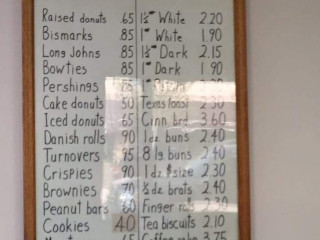 Raised donuts .65
Bismarks .85
Long Johns .85
Bowties .85
Pershings .85
Cake donuts 50
Iced donuts 65
Danish rolls 90
Turnovers 95
Crispies 90
Brownies 70
Peanut bars 60
Cookies 40
1½" White 2.20
1" White 1.90
1½" Dark 2.15
1" Dark 1.90
Texas toast 2.30
Cinn. brd 3.60
1 dz buns 2.40
8 lg buns 2.40
1 dz size 2.30
½ dz brats 2.40
Finger rolls 2.30
Tea biscuits 2.10
3.75